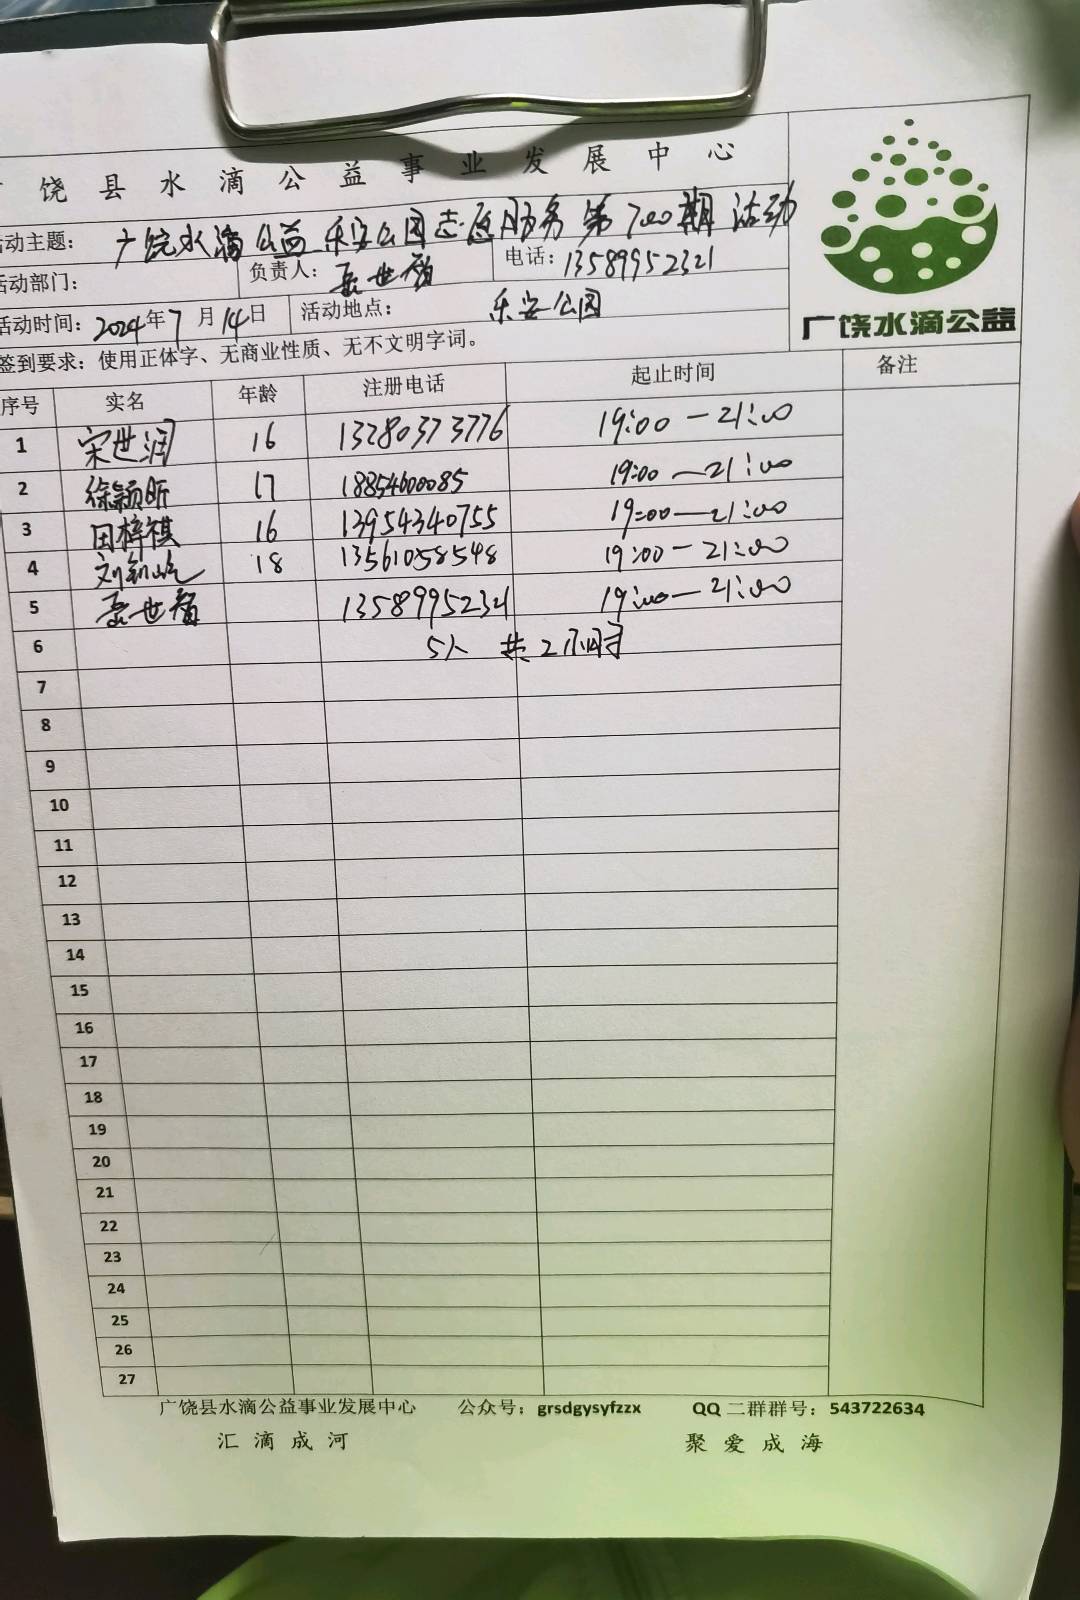 饶县水滴公益事业发展中心
活动主题：广饶水滴公益乐安公园志愿服务第700期活动
活动部门： 负责人： 世 电话：13589952321
活动时间：2024年7月14日 活动地点：乐安公园
广饶水滴公益
签到要求：使用正体字、无商业性质、无不文明字词。
序号 实名 年龄 注册电话 起止时间 备注
1 宋世润 16 13780373776 19:00-21:00
2 徐颖昕 17 18854600085 19:00-21:00
3 田梓祺 16 13954340755 19:00-21:00
4 刘 18 13561058548 19:00-21:00
5 世 13589952321 19:00-21:00
6 5人 共2小时
7
8
9
10
11
12
13
14
15
16
17
18
19
20
21
22
23
24
25
26
27
广饶县水滴公益事业发展中心 公众号：grsdgysyfzzx QQ二群群号：543722634
汇滴成河 聚爱成海